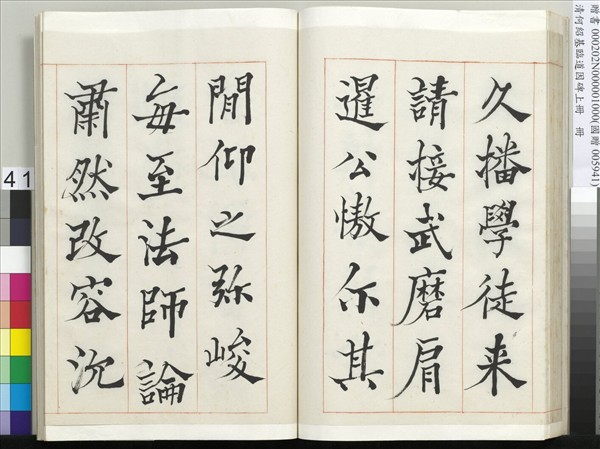 久播學徒来
請接武磨肩
暹公傲尒其
閒仰之弥峻
每至法師論
肅然改容沉
贈書 000202N000001000(國贈 005941)
清何紹基臨道因碑上冊 冊
41